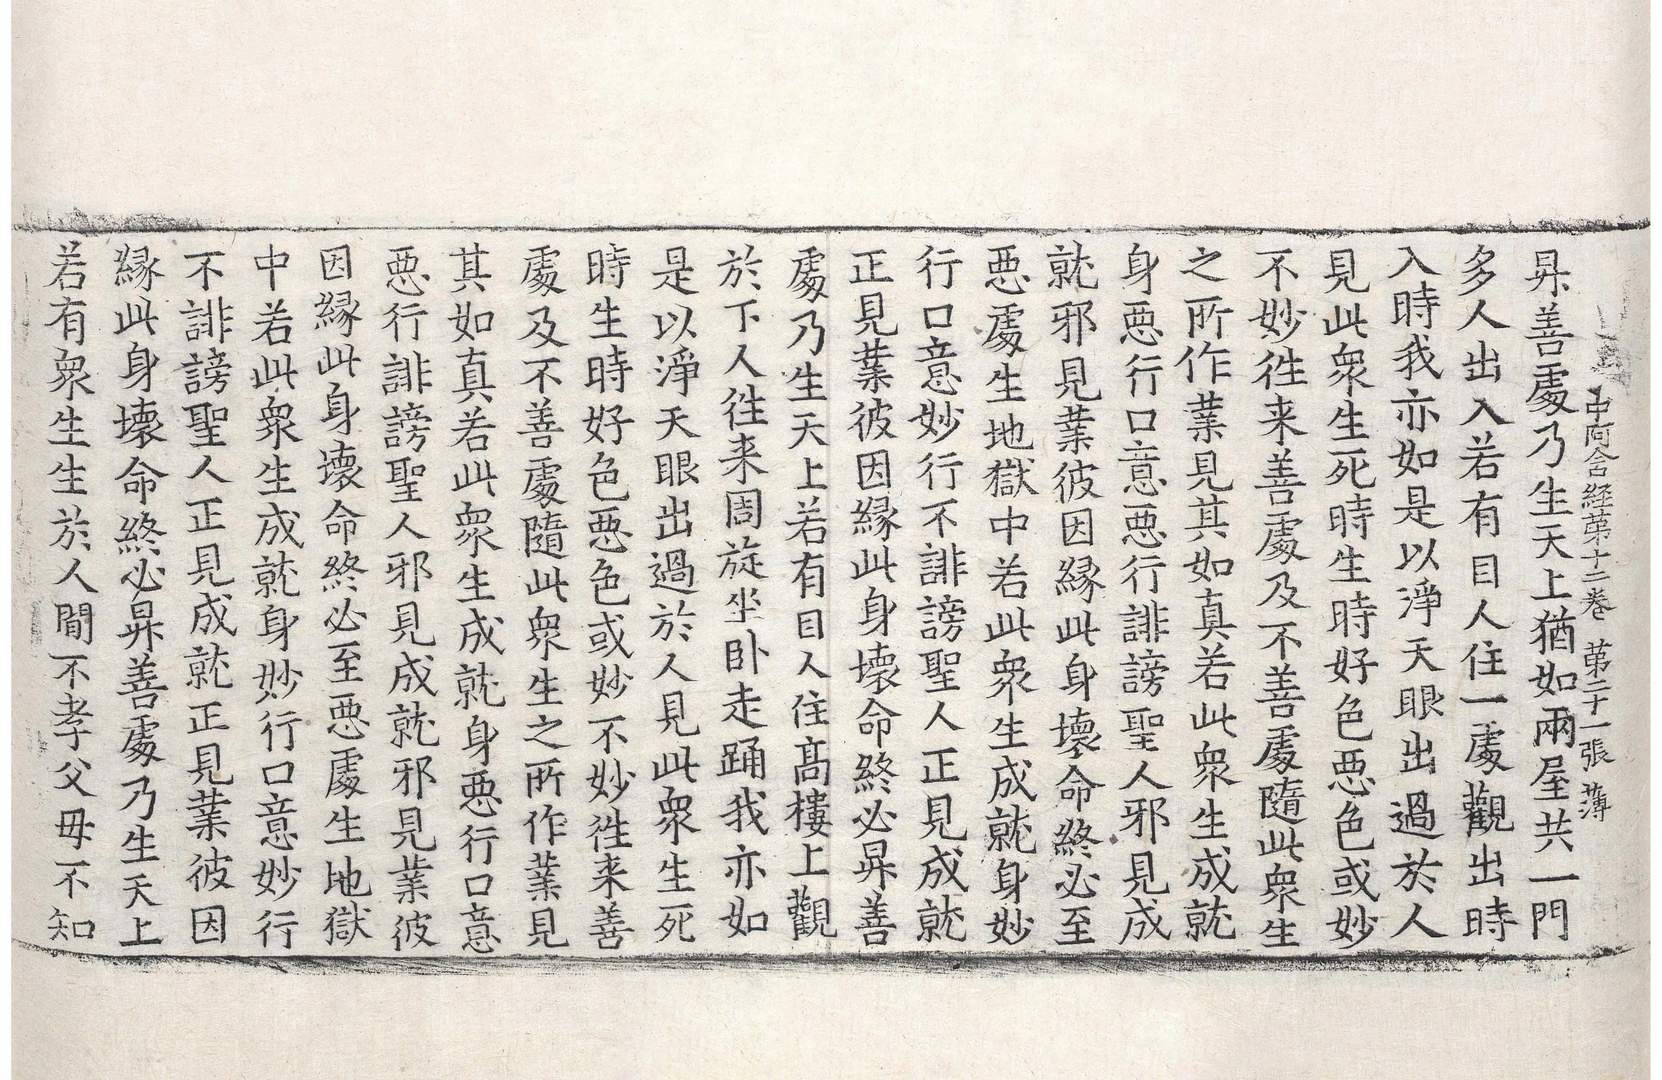 中阿含経苐十二卷　苐二十一張　薄
昇善處乃生天上猶如兩屋共一門
多人出入若有目人住一處觀出時
入時我亦如是以淨天眼出過於人
見此衆生死時生時好色惡色或妙
不妙徃来善處及不善處隨此衆生
之所作業見其如真若此衆生成就
身惡行口意惡行誹謗聖人邪見成
就邪見業彼因縁此身壞命終必至
惡處生地獄中若此衆生成就身妙
行口意妙行不誹謗聖人正見成就
正見業彼因縁此身壞命終必昇善
處乃生天上若有目人住髙樓上觀
於下人徃来周旋坐卧走踊我亦如
是以淨天眼出過於人見此衆生死
時生時好色惡色或妙不妙徃来善
處及不善處隨此衆生之所作業見
其如真若此衆生成就身惡行口意
惡行誹謗聖人邪見成就邪見業彼
因縁此身壞命終必至惡處生地獄
中若此衆生成就身妙行口意妙行
不誹謗聖人正見成就正見業彼因
縁此身壞命終必昇善處乃生天上
若有衆生生於人間不孝父母不知